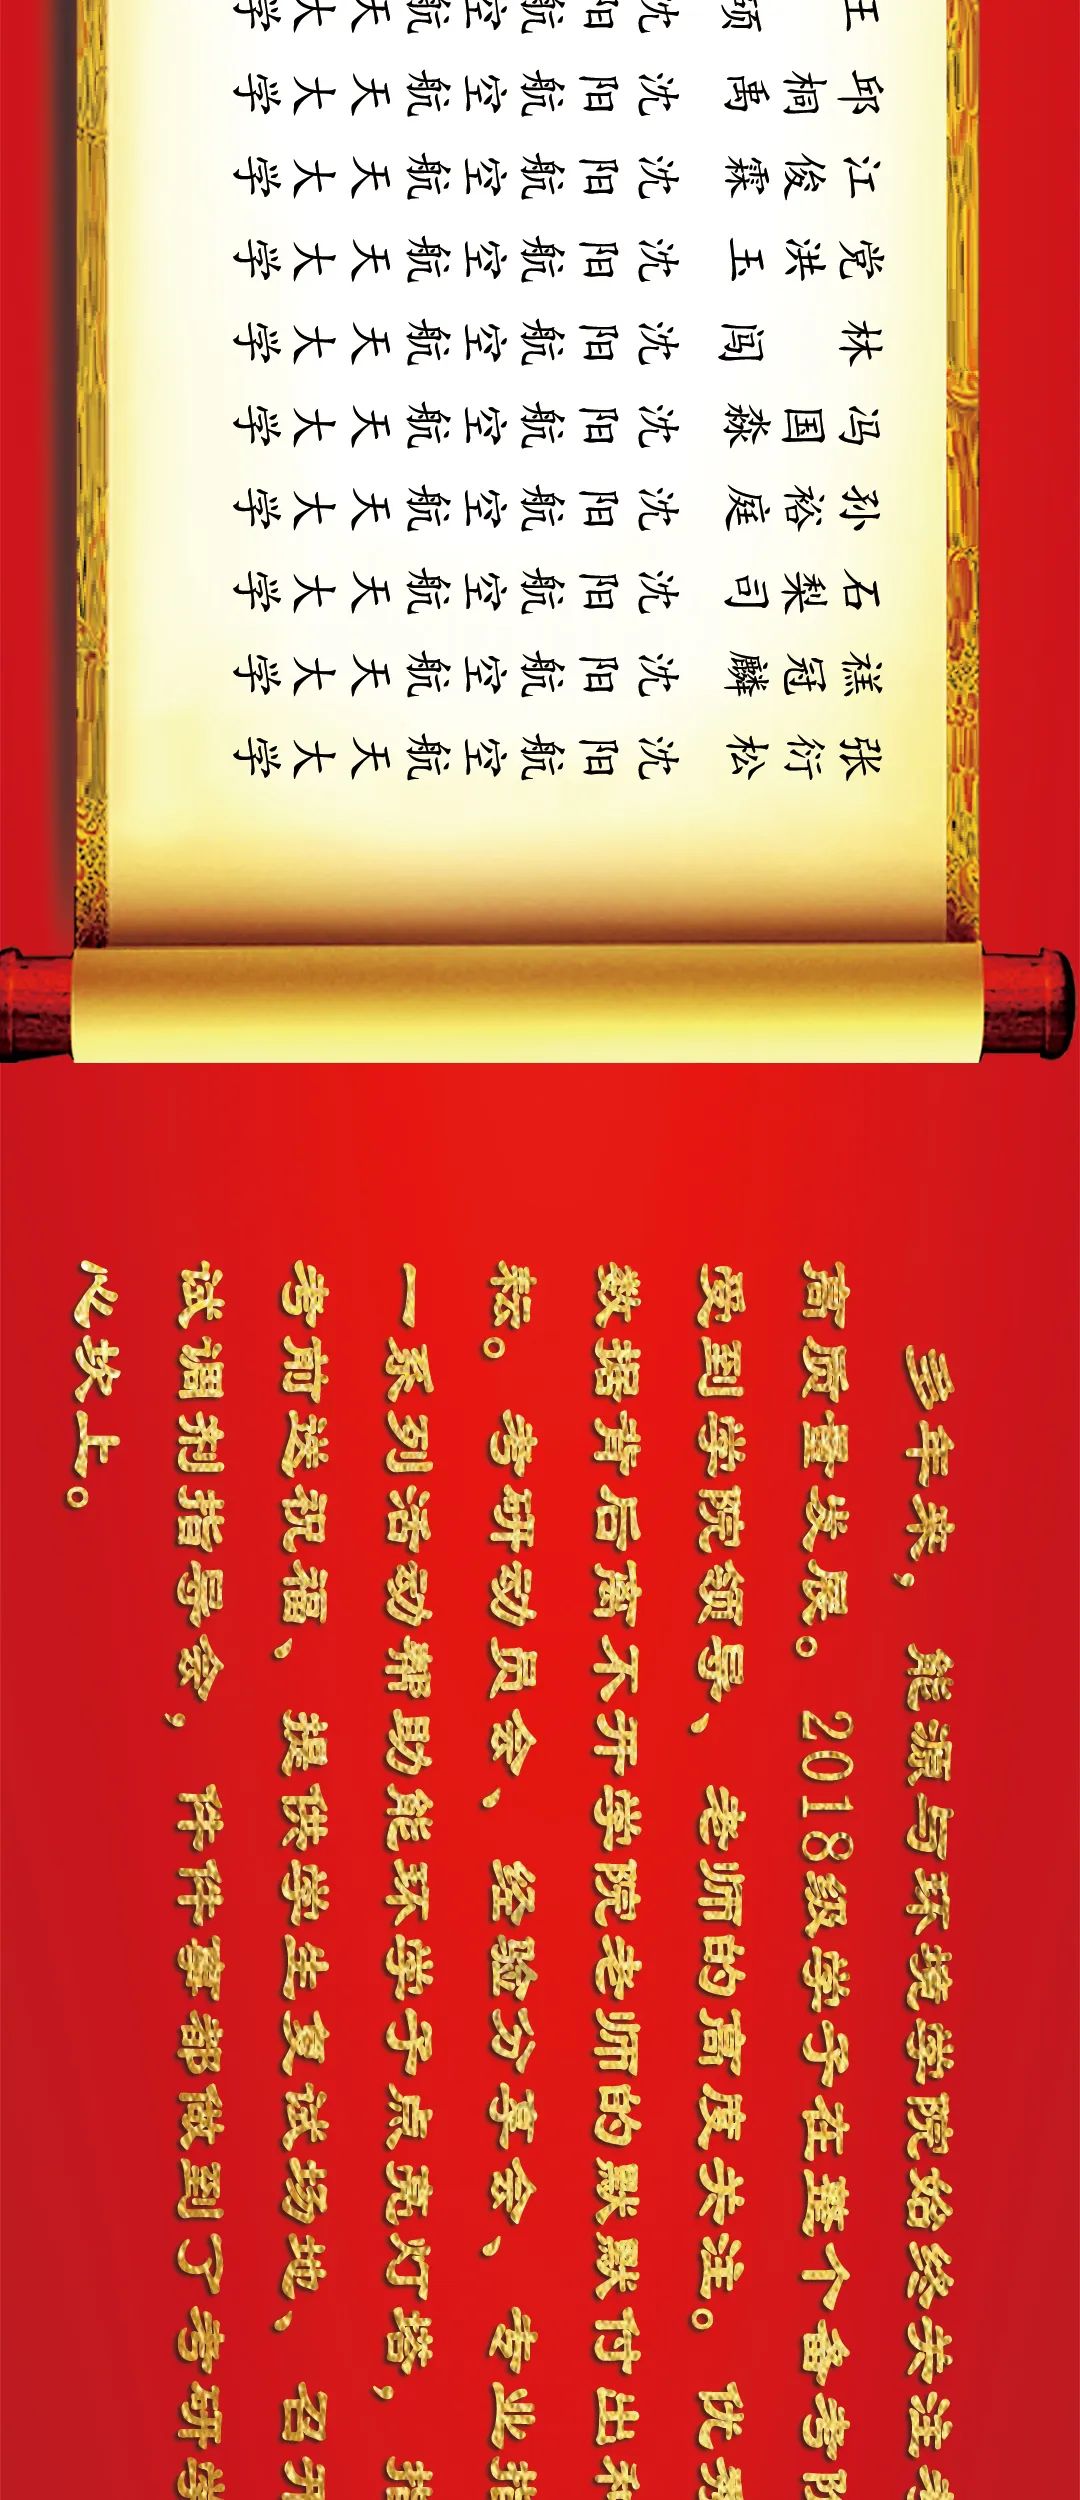 王硕 沈阳航空航天大学
邱桐禹 沈阳航空航天大学
江俊霖 沈阳航空航天大学
党洪玉 沈阳航空航天大学
林闯 沈阳航空航天大学
冯国淼 沈阳航空航天大学
孙裕庭 沈阳航空航天大学
石梨司 沈阳航空航天大学
禚冠麟 沈阳航空航天大学
张衍松 沈阳航空航天大学
多年来，能源与环境学院始终关注考
高质量发展。2018级学子在整个备考阶
受到学院领导、老师的高度关注。优秀
数据背后离不开学院老师的默默付出和
耘。考研动员会、经验分享会、专业指
一系列活动帮助能环学子点亮灯塔，指
考前送祝福、提供学生复试场地、召开
试调剂指导会，件件事都做到了考研学
心坎上。